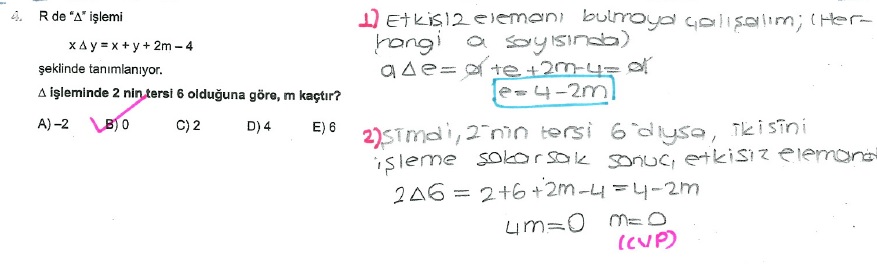 4. R de "Δ" işlemi
x Δ y = x + y + 2m – 4
şeklinde tanımlanıyor.
Δ işleminde 2 nin tersi 6 olduğuna göre, m kaçtır?
A) –2 B) 0 C) 2 D) 4 E) 6
1) Etkisiz elemanı bulmaya çalışalım; (Her-
hangi a sayısında)
a Δ e = a + e + 2m - 4 = a
e = 4 - 2m
2) Şimdi, 2'nin tersi 6'dıysa, ikisini
işleme sokarsak sonuç, etkisiz eleman
2 Δ 6 = 2 + 6 + 2m - 4 = 4 - 2m
4m = 0 m = 0
(CVP)